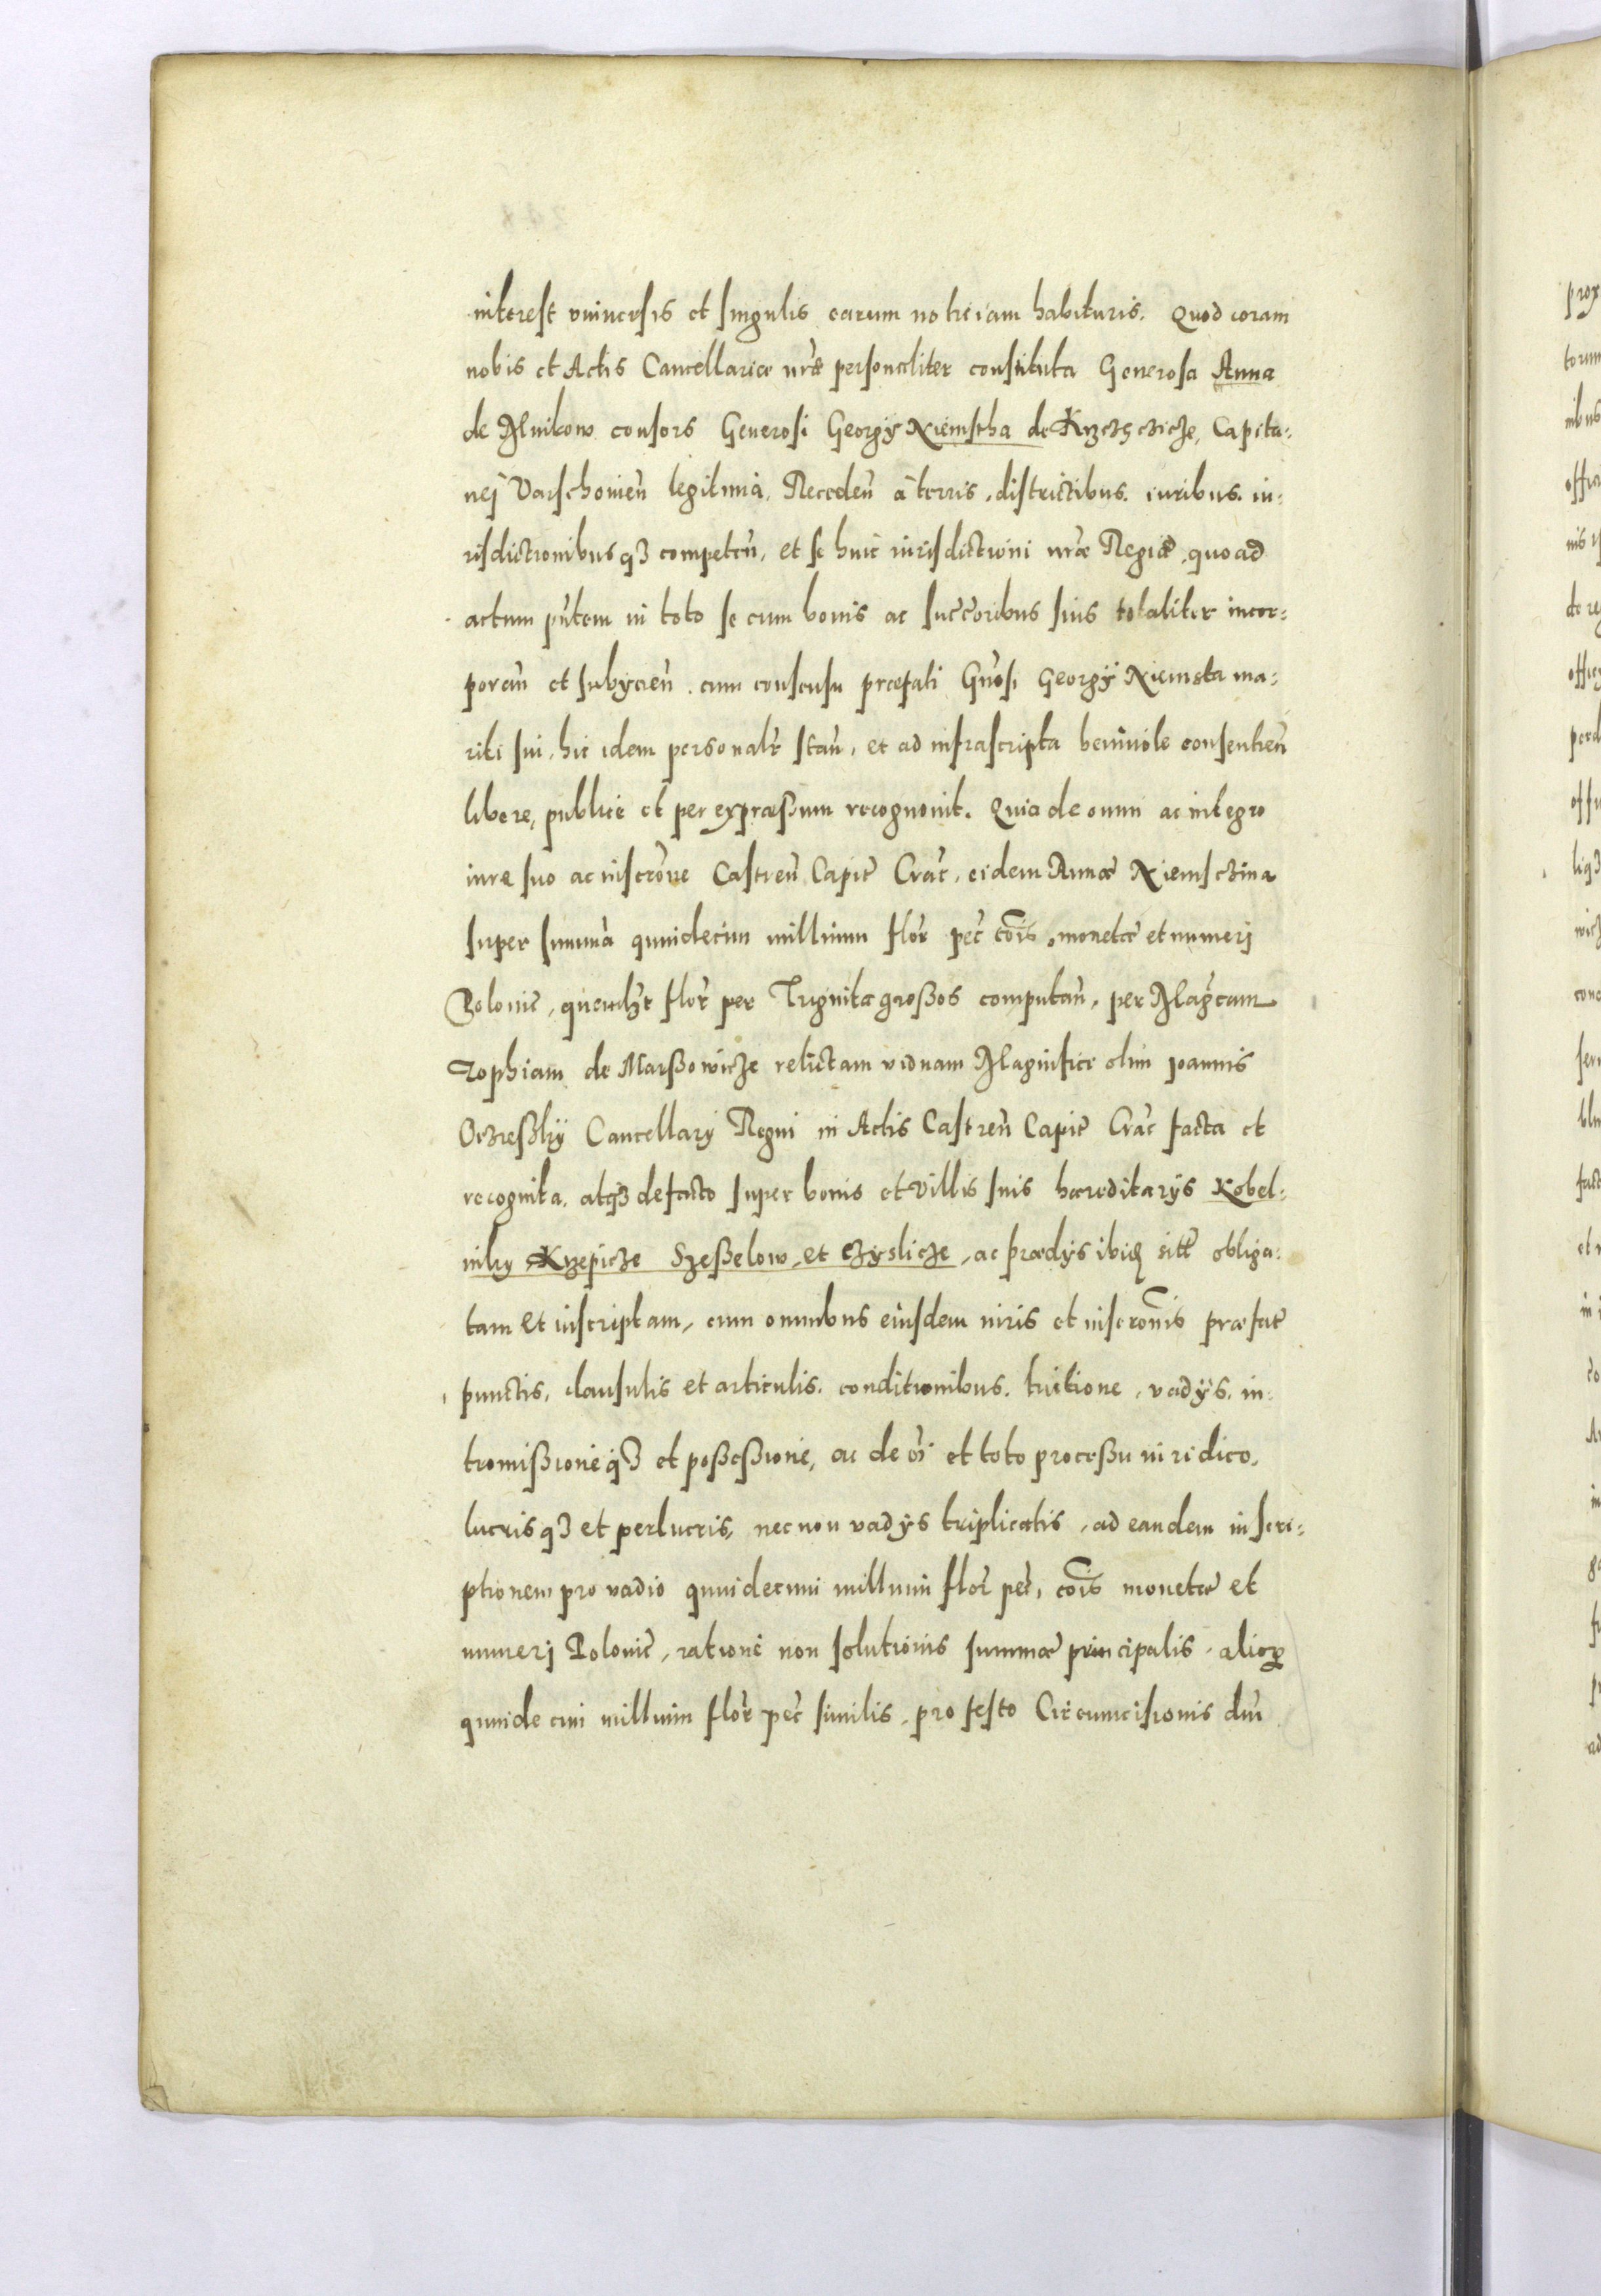 interest vniuersis et singulis earum noticiam habituris. Quod coram
nobis et Actis Cancellariæ nr̃æ personaliter constituta Generosa Anna
de Mnikow consors Generosi Georgÿ Niemstha de Krzczęczicze, Capita:
nej Varschouien̄ legitima, Receden̄ à terris, districtibus, iuribus, iu:
risdictionibusqȝ competen̄, et se huic iurisdictioni nr̃æ Regiæ, quoad
actum pñtem in toto se cum bonis ac succ̄oribus suis totaliter incor:
poran̄ et subÿcien̄, cum consensu præfati Gn̄osi Georgÿ Niemsta ma:
riti sui, hic idem personalr̄ stan̄, et ad infrascripta beniuole consentien̄
libere, publice et per expræßum recognouit. Quia de omni ac integro
iure suo ac inscr̄one Castren̄ Capit̄ Crac̄, eidem Annæ Niemsczina
super summa quindecim millium flor̄ pec̄ cõis, monetæ et numerj
Polonic̄, quemlȝt flor̄ per Trignita großos computan̄, per Mag̃cam
Zophiam de Marßowicze relictam viduam Magnifici olim Joannis
Oczießky Cancellarÿ Regni in Actis Castren̄ Capit̄ Crac̄ facta et
recognita, atqȝ de facto super bonis et Villis suis hæreditarÿs Kobel:
niky Krzepicze Szeßelow, et Czyslicze, ac prædÿs ibiđ sitt̄ obliga:
tam et inscriptam, cum omnibus eiusdem iuris et inscr̄onis præfat̄
punctis, clausulis et articulis, conditionibus, tuitione, vadÿs, in:
tromißioneqȝ et poßeßione, ac de oī et toto proceßu iuridico,
lucrisqȝ et perlucris, necnon vadÿs triplicatis, ad eandem inscri:
ptionem pro vadio quindecim millium flor̄ pec̄, cõis monetæ et
numerj Polonic̄, ratione non solutionis summæ principalis, alioꝝ
quindecim millium flor̄ pec̄ similis, pro festo Circumcisionis dn̄i